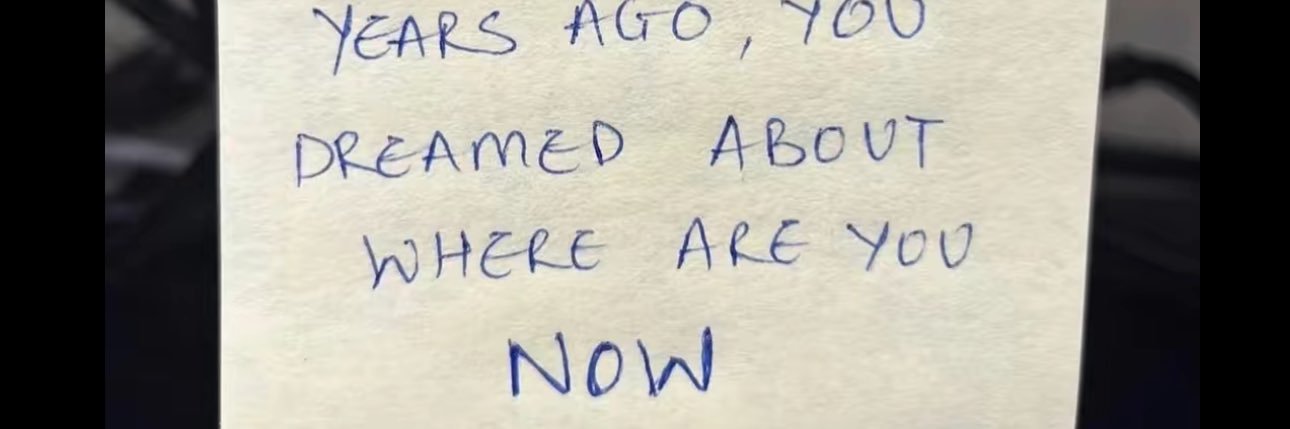 YEARS AGO, YOU
DREAMED ABOUT
WHERE ARE YOU
NOW